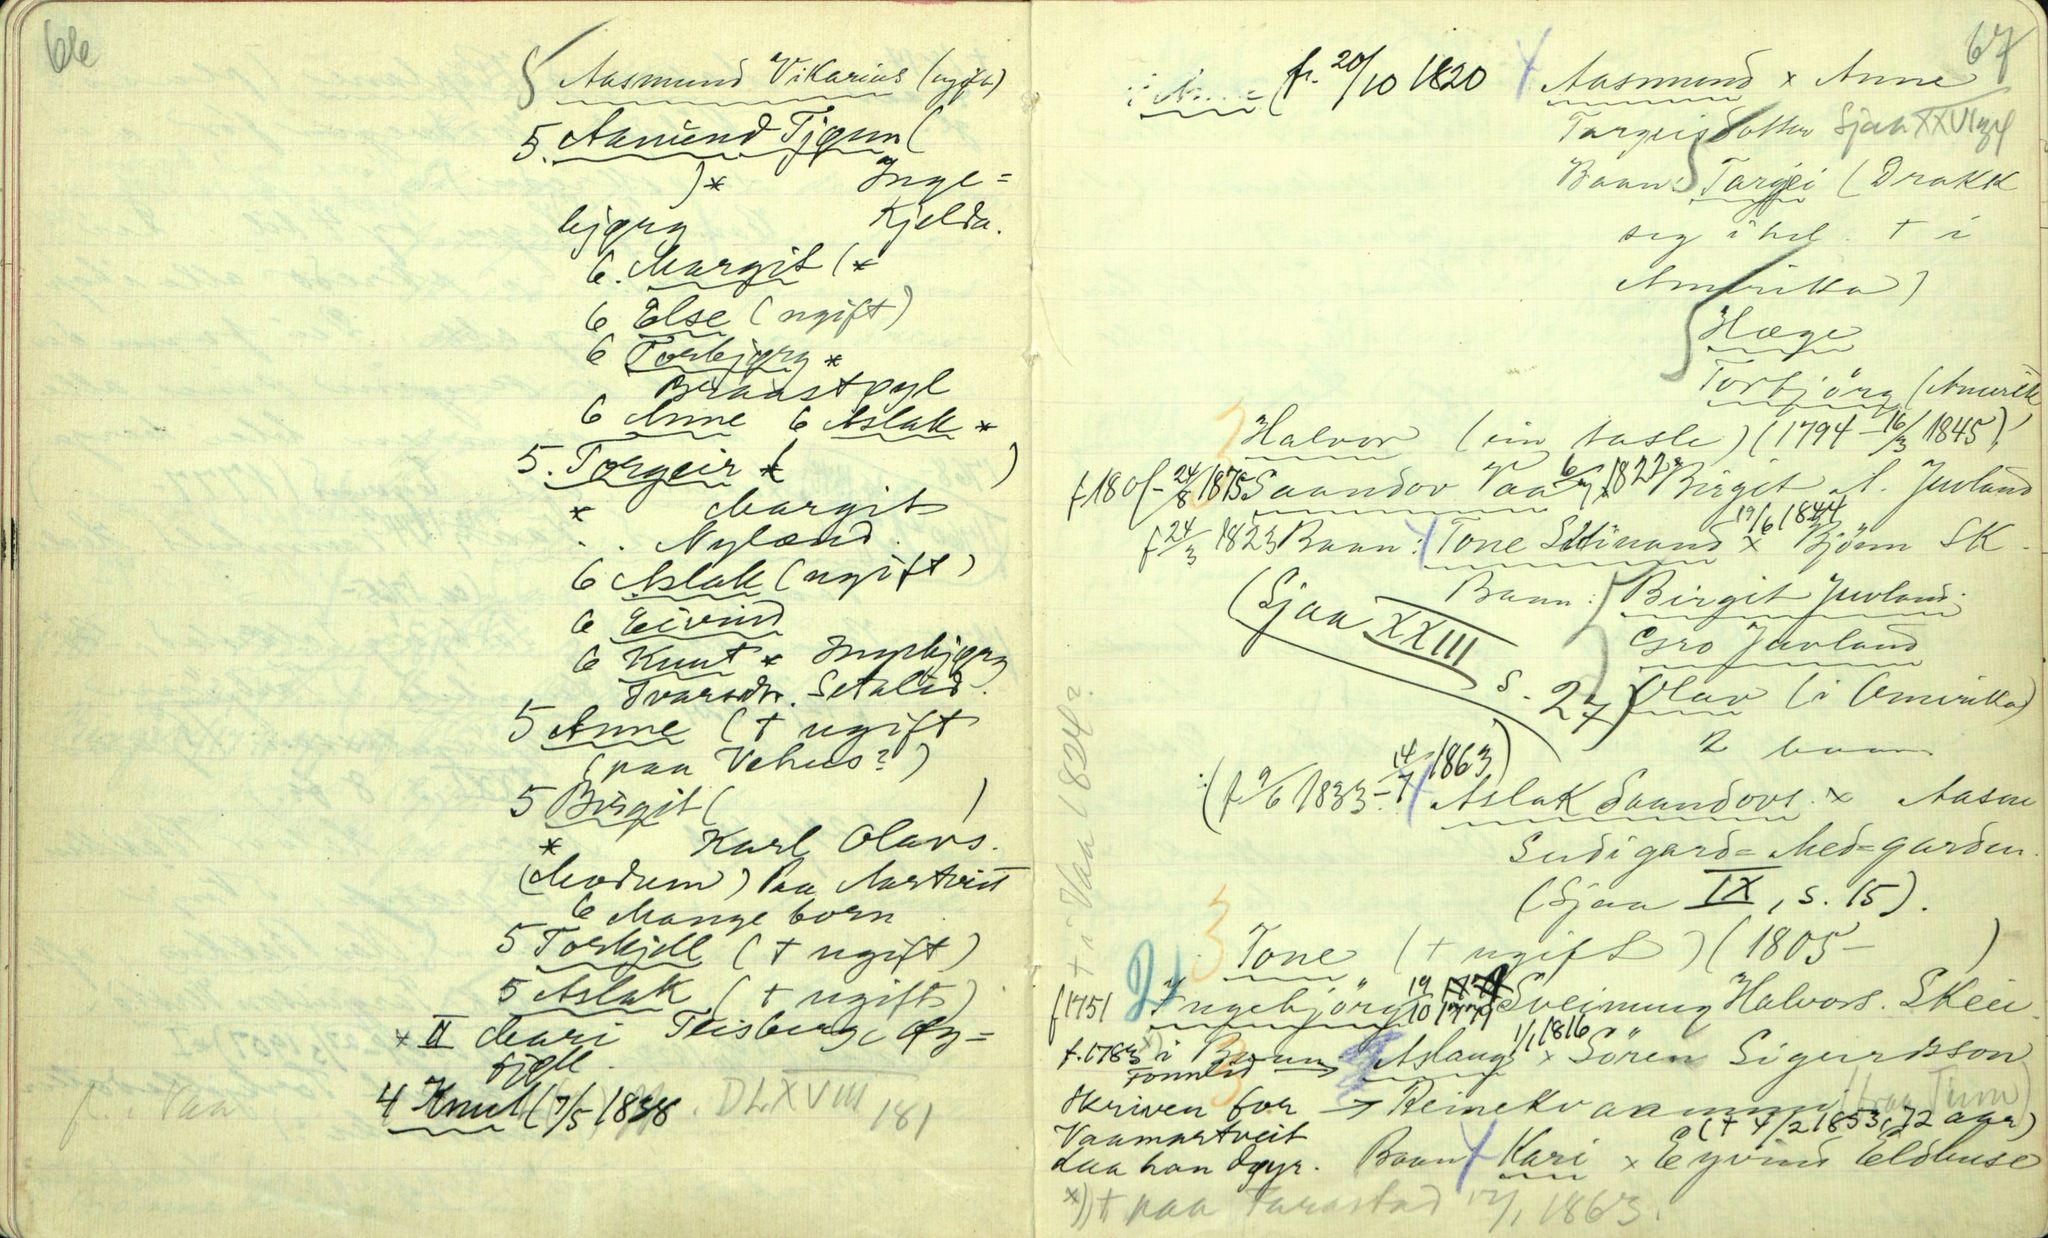 66
Aasmund Vikarius (ugift)
5. Aamund Tjønn (
) * Inge=
bjørg Kjelda.
6. Margit (*
6 Else (ugift)
6 Torbjørg *
Braastøyl
6 Anne 6 Aslak *
5. Torgeir * ( )
* Margit
Nyland.
6 Aslak (ugift)
6 Eivind
6 Knut * Ingebjørg
Ivarsdtr. Setalid.
5 Anne (+ ugift
(paa Vehus?)
5 Birgit ( )
* Karl Olavs.
(Modum) Paa Aartveit
6 Mange born
5 Torkjell (+ ugift)
5 Aslak (+ ugift)
x II Mari Teisberg, Øy=
fjell.
4 Knut (7/5 1838 DLXVIII 181
f. i Vaa
67
(f. 20/10 1820 Aasmund x Anne
Targeisdotter Sjaa XXVI
Baan: Targei (Drakk
seg ihel. + i
Amerika)
Hæge
Torbjörg (Amerik
3 Halvor (ein tasle) (1794 - 16/3 1845)
f 180 - 24/8 1875 3 Saandov Vaa x 1822 Birgit A. Juvland
f 24/3 1823 Baan: Tone x 19/6 1844 Bjönn Sk.
Baan: Birgit Juvland.
(Sjaa XXIII s. 27) Gro Juvland
Olav (i Amerika)
2 baan
(f 9/6 1833 - 14/7 1863) Aslak Saandovs. x Aasne
Sudigard= Med=garden.
(Sjaa IX, s. 15).
+ i Vaa 1824?
3 Tone (+ ugift) (1805 - )
f 1751 2 Ingebjörg 19/10 1779 Sveinung Halvors. Skei.
f. 1783 i Baan: Aslaug 1/1 1816 x Sören Sigurdsson
Tonnlid
Skriven for → Reinekvaammen (fraa Tinn)
Vaamartveit (+ 4/2 1853, 72 aar)
daa han døyr. Baan Kari x Eyvind Eldhuse
x) + paa Tarastad 17/1 1863.